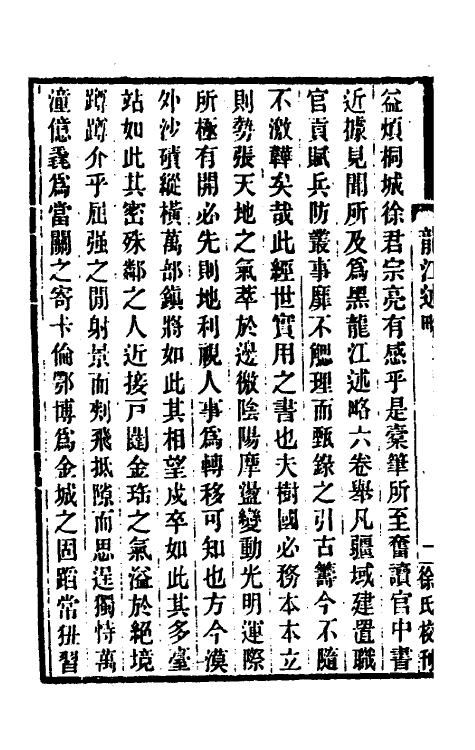 益煩桐城徐君宗亮有感乎是橐筆所至奮讀官中書
近據見聞所及爲黑龍江述略六卷舉凡疆域建置職
官貢賦兵防叢事靡不觶理而甄錄之引古籌今不隨
不激韙矣哉此經世實用之書也夫樹國必務本本立
則勢張天地之氣萃於邊徼陰陽摩盪變動光明運際
所極有開必先則地利視人事爲轉移可知也方今漠
外沙磧縱橫萬部鎭將如此其相望戍卒如此其多臺
站如此其密殊鄰之人近接戸闥金珠之氣溢於絕境
蹲蹲介乎屈强之閒射景而刺飛抵隙而思逞獨恃萬
潼億毳爲當關之寄卡倫鄂博爲金城之固蹈常狃習
龍江述略
一
徐氏校刊